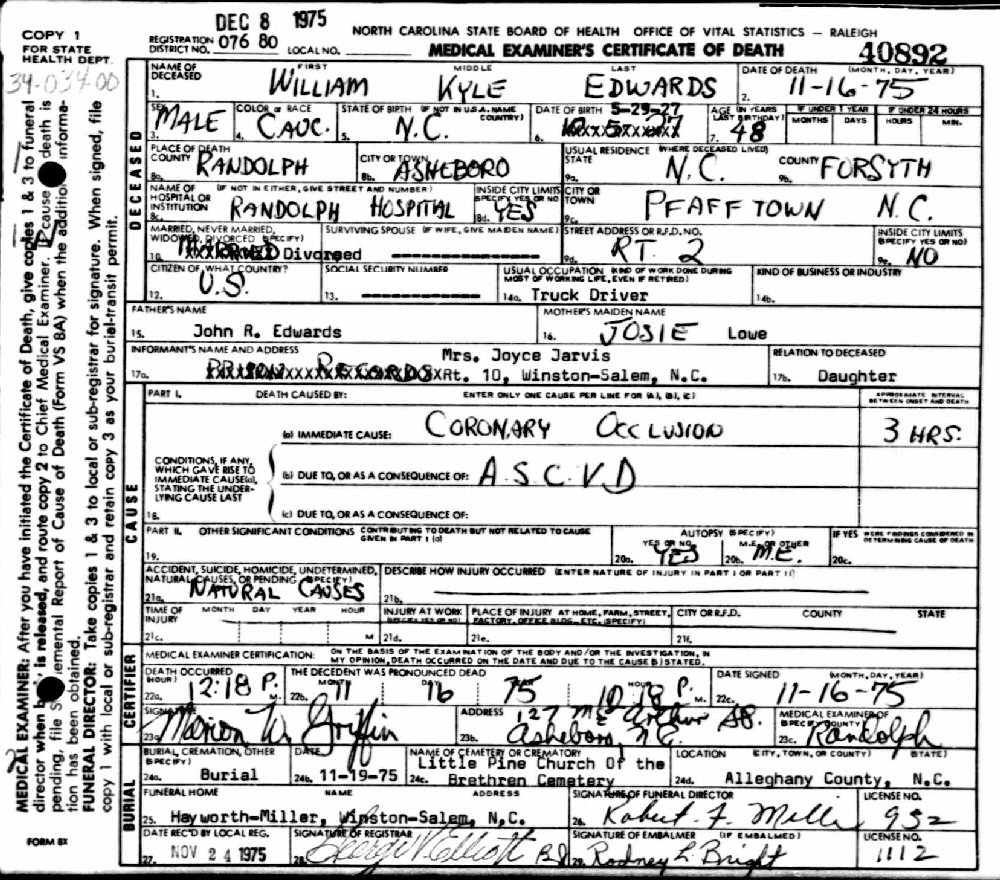 DEC 8 1975
COPY 1
FOR STATE
HEALTH DEPT.
34-034.00
REGISTRATION DISTRICT NO. 076 80 LOCAL NO.
NORTH CAROLINA STATE BOARD OF HEALTH OFFICE OF VITAL STATISTICS – RALEIGH
MEDICAL EXAMINER'S CERTIFICATE OF DEATH 40892
MEDICAL EXAMINER: After you have initiated the Certificate of Death, give copies 1 & 3 to funeral
director when body is released, and route copy 2 to Chief Medical Examiner. If cause of death is
pending, file Supplemental Report of Cause of Death (Form VS 8A) when the additional informa-
tion has been obtained.
FUNERAL DIRECTOR: Take copies 1 & 3 to local or sub-registrar for signature. When signed, file
copy 1 with local or sub-registrar and retain copy 3 as your burial-transit permit.
DECEASED
NAME OF DECEASED FIRST MIDDLE LAST DATE OF DEATH (MONTH, DAY, YEAR)
1. WILLIAM KYLE EDWARDS 2. 11-16-75
SEX COLOR OR RACE STATE OF BIRTH (IF NOT IN U.S.A. NAME COUNTRY) DATE OF BIRTH 5-29-27 AGE (IN YEARS LAST BIRTHDAY) IF UNDER 1 YEAR IF UNDER 24 HOURS
MONTHS DAYS HOURS MIN.
3. MALE 4. CAUC. 5. N.C. 6. 7. 48
PLACE OF DEATH COUNTY CITY OR TOWN USUAL RESIDENCE (WHERE DECEASED LIVED) STATE COUNTY
8a. RANDOLPH 8b. ASHEBORO 9a. N.C. 9b. FORSYTH
NAME OF HOSPITAL OR INSTITUTION (IF NOT IN EITHER, GIVE STREET AND NUMBER) INSIDE CITY LIMITS (SPECIFY YES OR NO) CITY OR TOWN
8c. RANDOLPH HOSPITAL 8d. YES 9c. PFAFFTOWN N.C.
MARRIED, NEVER MARRIED, WIDOWED, DIVORCED (SPECIFY) SURVIVING SPOUSE (IF WIFE, GIVE MAIDEN NAME) STREET ADDRESS OR R.F.D. NO. INSIDE CITY LIMITS (SPECIFY YES OR NO)
10. Divorced 11. 9d. RT. 2 9e. NO
CITIZEN OF WHAT COUNTRY? SOCIAL SECURITY NUMBER USUAL OCCUPATION (KIND OF WORK DONE DURING MOST OF WORKING LIFE, EVEN IF RETIRED) KIND OF BUSINESS OR INDUSTRY
12. U.S. 13. 14a. Truck Driver 14b.
FATHER'S NAME MOTHER'S MAIDEN NAME
15. John R. Edwards 16. JOSIE Lowe
INFORMANT'S NAME AND ADDRESS Mrs. Joyce Jarvis RELATION TO DECEASED
17a. Rt. 10, Winston-Salem, N.C. 17b. Daughter
CAUSE
PART I. DEATH CAUSED BY: ENTER ONLY ONE CAUSE PER LINE FOR (A), (B), (C) APPROXIMATE INTERVAL BETWEEN ONSET AND DEATH
(a) IMMEDIATE CAUSE: CORONARY OCCLUSION 3 HRS.
CONDITIONS, IF ANY, WHICH GAVE RISE TO IMMEDIATE CAUSE(a), STATING THE UNDER-LYING CAUSE LAST
(b) DUE TO, OR AS A CONSEQUENCE OF: A.S.C.V.D
18. (c) DUE TO, OR AS A CONSEQUENCE OF:
PART II. OTHER SIGNIFICANT CONDITIONS CONTRIBUTING TO DEATH BUT NOT RELATED TO CAUSE GIVEN IN PART I (a) AUTOPSY (SPECIFY) IF YES WERE FINDINGS CONSIDERED IN DETERMINING CAUSE OF DEATH
YES OR NO M.E. OR OTHER
19. 20a. YES 20b. M.E. 20c.
ACCIDENT, SUICIDE, HOMICIDE, UNDETERMINED, NATURAL CAUSES, OR PENDING (SPECIFY) DESCRIBE HOW INJURY OCCURRED (ENTER NATURE OF INJURY IN PART I OR PART II)
21a. NATURAL CAUSES 21b.
TIME OF INJURY MONTH DAY YEAR HOUR INJURY AT WORK (SPECIFY YES OR NO) PLACE OF INJURY AT HOME, FARM, STREET, FACTORY, OFFICE BLDG., ETC. (SPECIFY) CITY OR R.F.D. COUNTY STATE
21c. M 21d. 21e. 21f.
CERTIFIER
MEDICAL EXAMINER CERTIFICATION: ON THE BASIS OF THE EXAMINATION OF THE BODY AND/OR THE INVESTIGATION, IN
MY OPINION, DEATH OCCURRED ON THE DATE AND DUE TO THE CAUSE(S) STATED.
DEATH OCCURRED (HOUR) THE DECEDENT WAS PRONOUNCED DEAD MONTH HOUR DATE SIGNED (MONTH, DAY, YEAR)
22a. 12:18 P. M. 22b. 11 16 75 P. M. 22c. 11-16-75
SIGNATURE ADDRESS 127 St. MEDICAL EXAMINER OF (SPECIFY COUNTY)
23a. Marion W. Griffin 23b. Asheboro, N.C. 23c. Randolph
BURIAL
BURIAL, CREMATION, OTHER (SPECIFY) DATE NAME OF CEMETERY OR CREMATORY LOCATION (CITY, TOWN, OR COUNTY) (STATE)
Little Pine Church Of the
24a. Burial 24b. 11-19-75 24c. Brethren Cemetery 24d. Alleghany County, N.C.
FUNERAL HOME NAME ADDRESS SIGNATURE OF FUNERAL DIRECTOR LICENSE NO.
25. Hayworth-Miller, Winston-Salem, N.C. 26. Robert F. Miller 952
DATE REC'D BY LOCAL REG. SIGNATURE OF REGISTRAR SIGNATURE OF EMBALMER (IF EMBALMED) LICENSE NO.
27. NOV 24 1975 28. 29. Rodney L. Bright 1112
FORM 8X